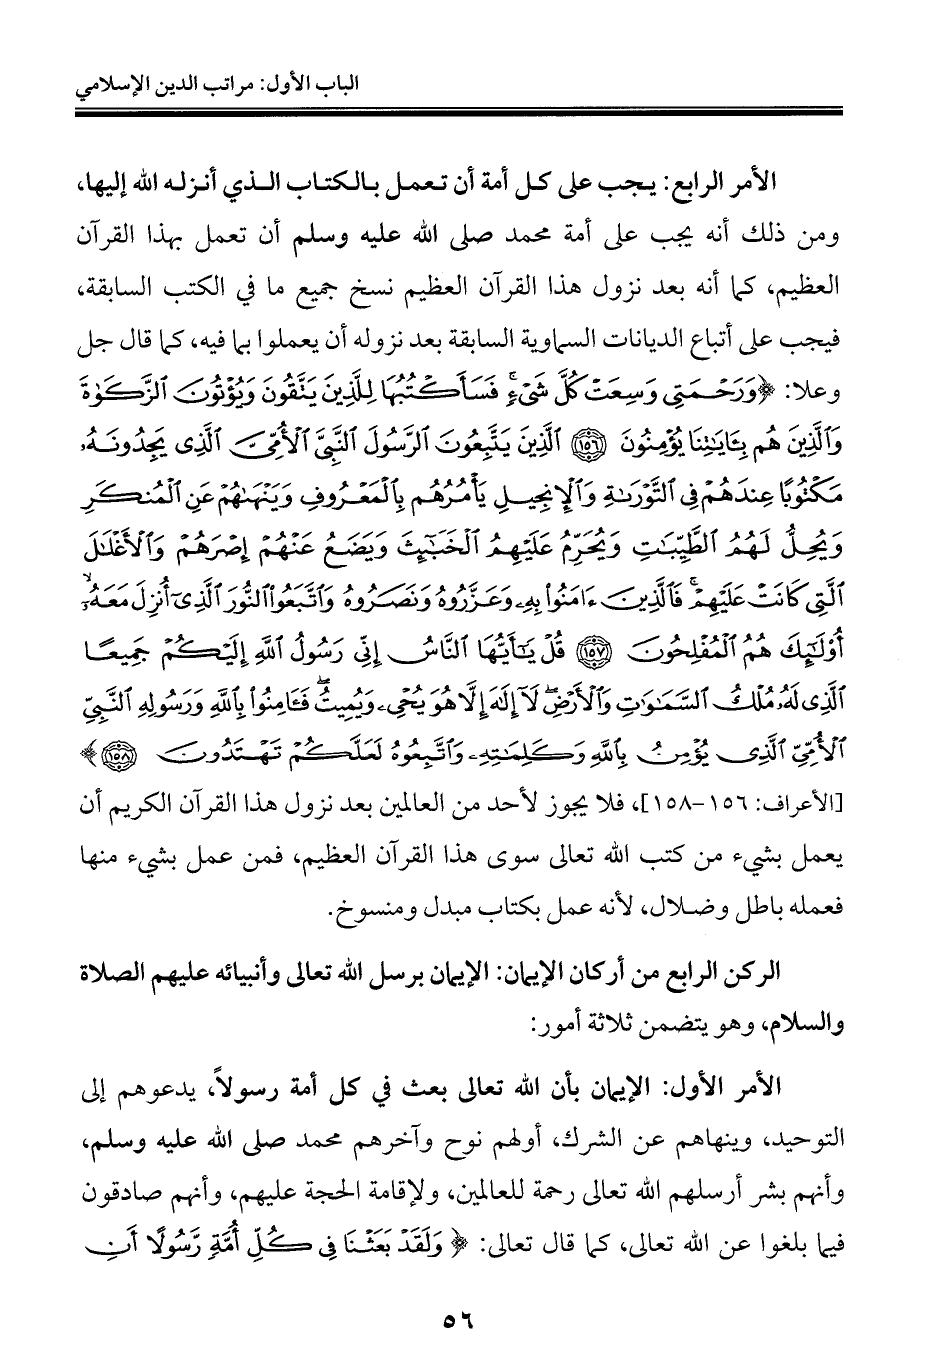 الباب الأول: مراتب الدين الإسلامي
الأمر الرابع: يجب على كل أمة أن تعمل بالكتاب الذي أنزله الله إليها،
ومن ذلك أنه يجب على أمة محمد صلى الله عليه وسلم أن تعمل بهذا القرآن
العظيم، كما أنه بعد نزول هذا القرآن العظيم نسخ جميع ما في الكتب السابقة،
فيجب على أتباع الديانات السماوية السابقة بعد نزوله أن يعملوا بما فيه، كما قال جل
وعلا: ﴿وَرَحْمَتِي وَسِعَتْ كُلَّ شَيْءٍ ۚ فَسَأَكْتُبُهَا لِلَّذِينَ يَتَّقُونَ وَيُؤْتُونَ ٱلزَّكَوٰةَ
وَٱلَّذِينَ هُم بِـَٔايَـٰتِنَا يُؤْمِنُونَ ۝١٥٦ ٱلَّذِينَ يَتَّبِعُونَ ٱلرَّسُولَ ٱلنَّبِيَّ ٱلْأُمِّيَّ ٱلَّذِي يَجِدُونَهُۥ
مَكْتُوبًا عِندَهُمْ فِي ٱلتَّوْرَىٰةِ وَٱلْإِنجِيلِ يَأْمُرُهُم بِٱلْمَعْرُوفِ وَيَنْهَىٰهُمْ عَنِ ٱلْمُنكَرِ
وَيُحِلُّ لَهُمُ ٱلطَّيِّبَـٰتِ وَيُحَرِّمُ عَلَيْهِمُ ٱلْخَبَـٰٓئِثَ وَيَضَعُ عَنْهُمْ إِصْرَهُمْ وَٱلْأَغْلَـٰلَ
ٱلَّتِي كَانَتْ عَلَيْهِمْ ۚ فَٱلَّذِينَ ءَامَنُوا۟ بِهِۦ وَعَزَّرُوهُ وَنَصَرُوهُ وَٱتَّبَعُوا۟ ٱلنُّورَ ٱلَّذِيٓ أُنزِلَ مَعَهُۥٓ ۙ
أُو۟لَـٰٓئِكَ هُمُ ٱلْمُفْلِحُونَ ۝١٥٧ قُلْ يَـٰٓأَيُّهَا ٱلنَّاسُ إِنِّي رَسُولُ ٱللَّهِ إِلَيْكُمْ جَمِيعًا
ٱلَّذِي لَهُۥ مُلْكُ ٱلسَّمَـٰوَٰتِ وَٱلْأَرْضِ ۖ لَآ إِلَـٰهَ إِلَّا هُوَ يُحْيِۦ وَيُمِيتُ ۖ فَـَٔامِنُوا۟ بِٱللَّهِ وَرَسُولِهِ ٱلنَّبِيِّ
ٱلْأُمِّيِّ ٱلَّذِي يُؤْمِنُ بِٱللَّهِ وَكَلِمَـٰتِهِۦ وَٱتَّبِعُوهُ لَعَلَّكُمْ تَهْتَدُونَ ۝١٥٨﴾
[الأعراف: ١٥٦-١٥٨]، فلا يجوز لأحد من العالمين بعد نزول هذا القرآن الكريم أن
يعمل بشيء من كتب الله تعالى سوى هذا القرآن العظيم، فمن عمل بشيء منها
فعمله باطل وضلال، لأنه عمل بكتاب مبدل ومنسوخ.
الركن الرابع من أركان الإيمان: الإيمان برسل الله تعالى وأنبيائه عليهم الصلاة
والسلام، وهو يتضمن ثلاثة أمور:
الأمر الأول: الإيمان بأن الله تعالى بعث في كل أمة رسولاً، يدعوهم إلى
التوحيد، وينهاهم عن الشرك، أولهم نوح وآخرهم محمد صلى الله عليه وسلم،
وأنهم بشر أرسلهم الله تعالى رحمة للعالمين، ولإقامة الحجة عليهم، وأنهم صادقون
فيما بلغوا عن الله تعالى، كما قال تعالى: ﴿وَلَقَدْ بَعَثْنَا فِي كُلِّ أُمَّةٍ رَّسُولًا أَنِ
٥٦